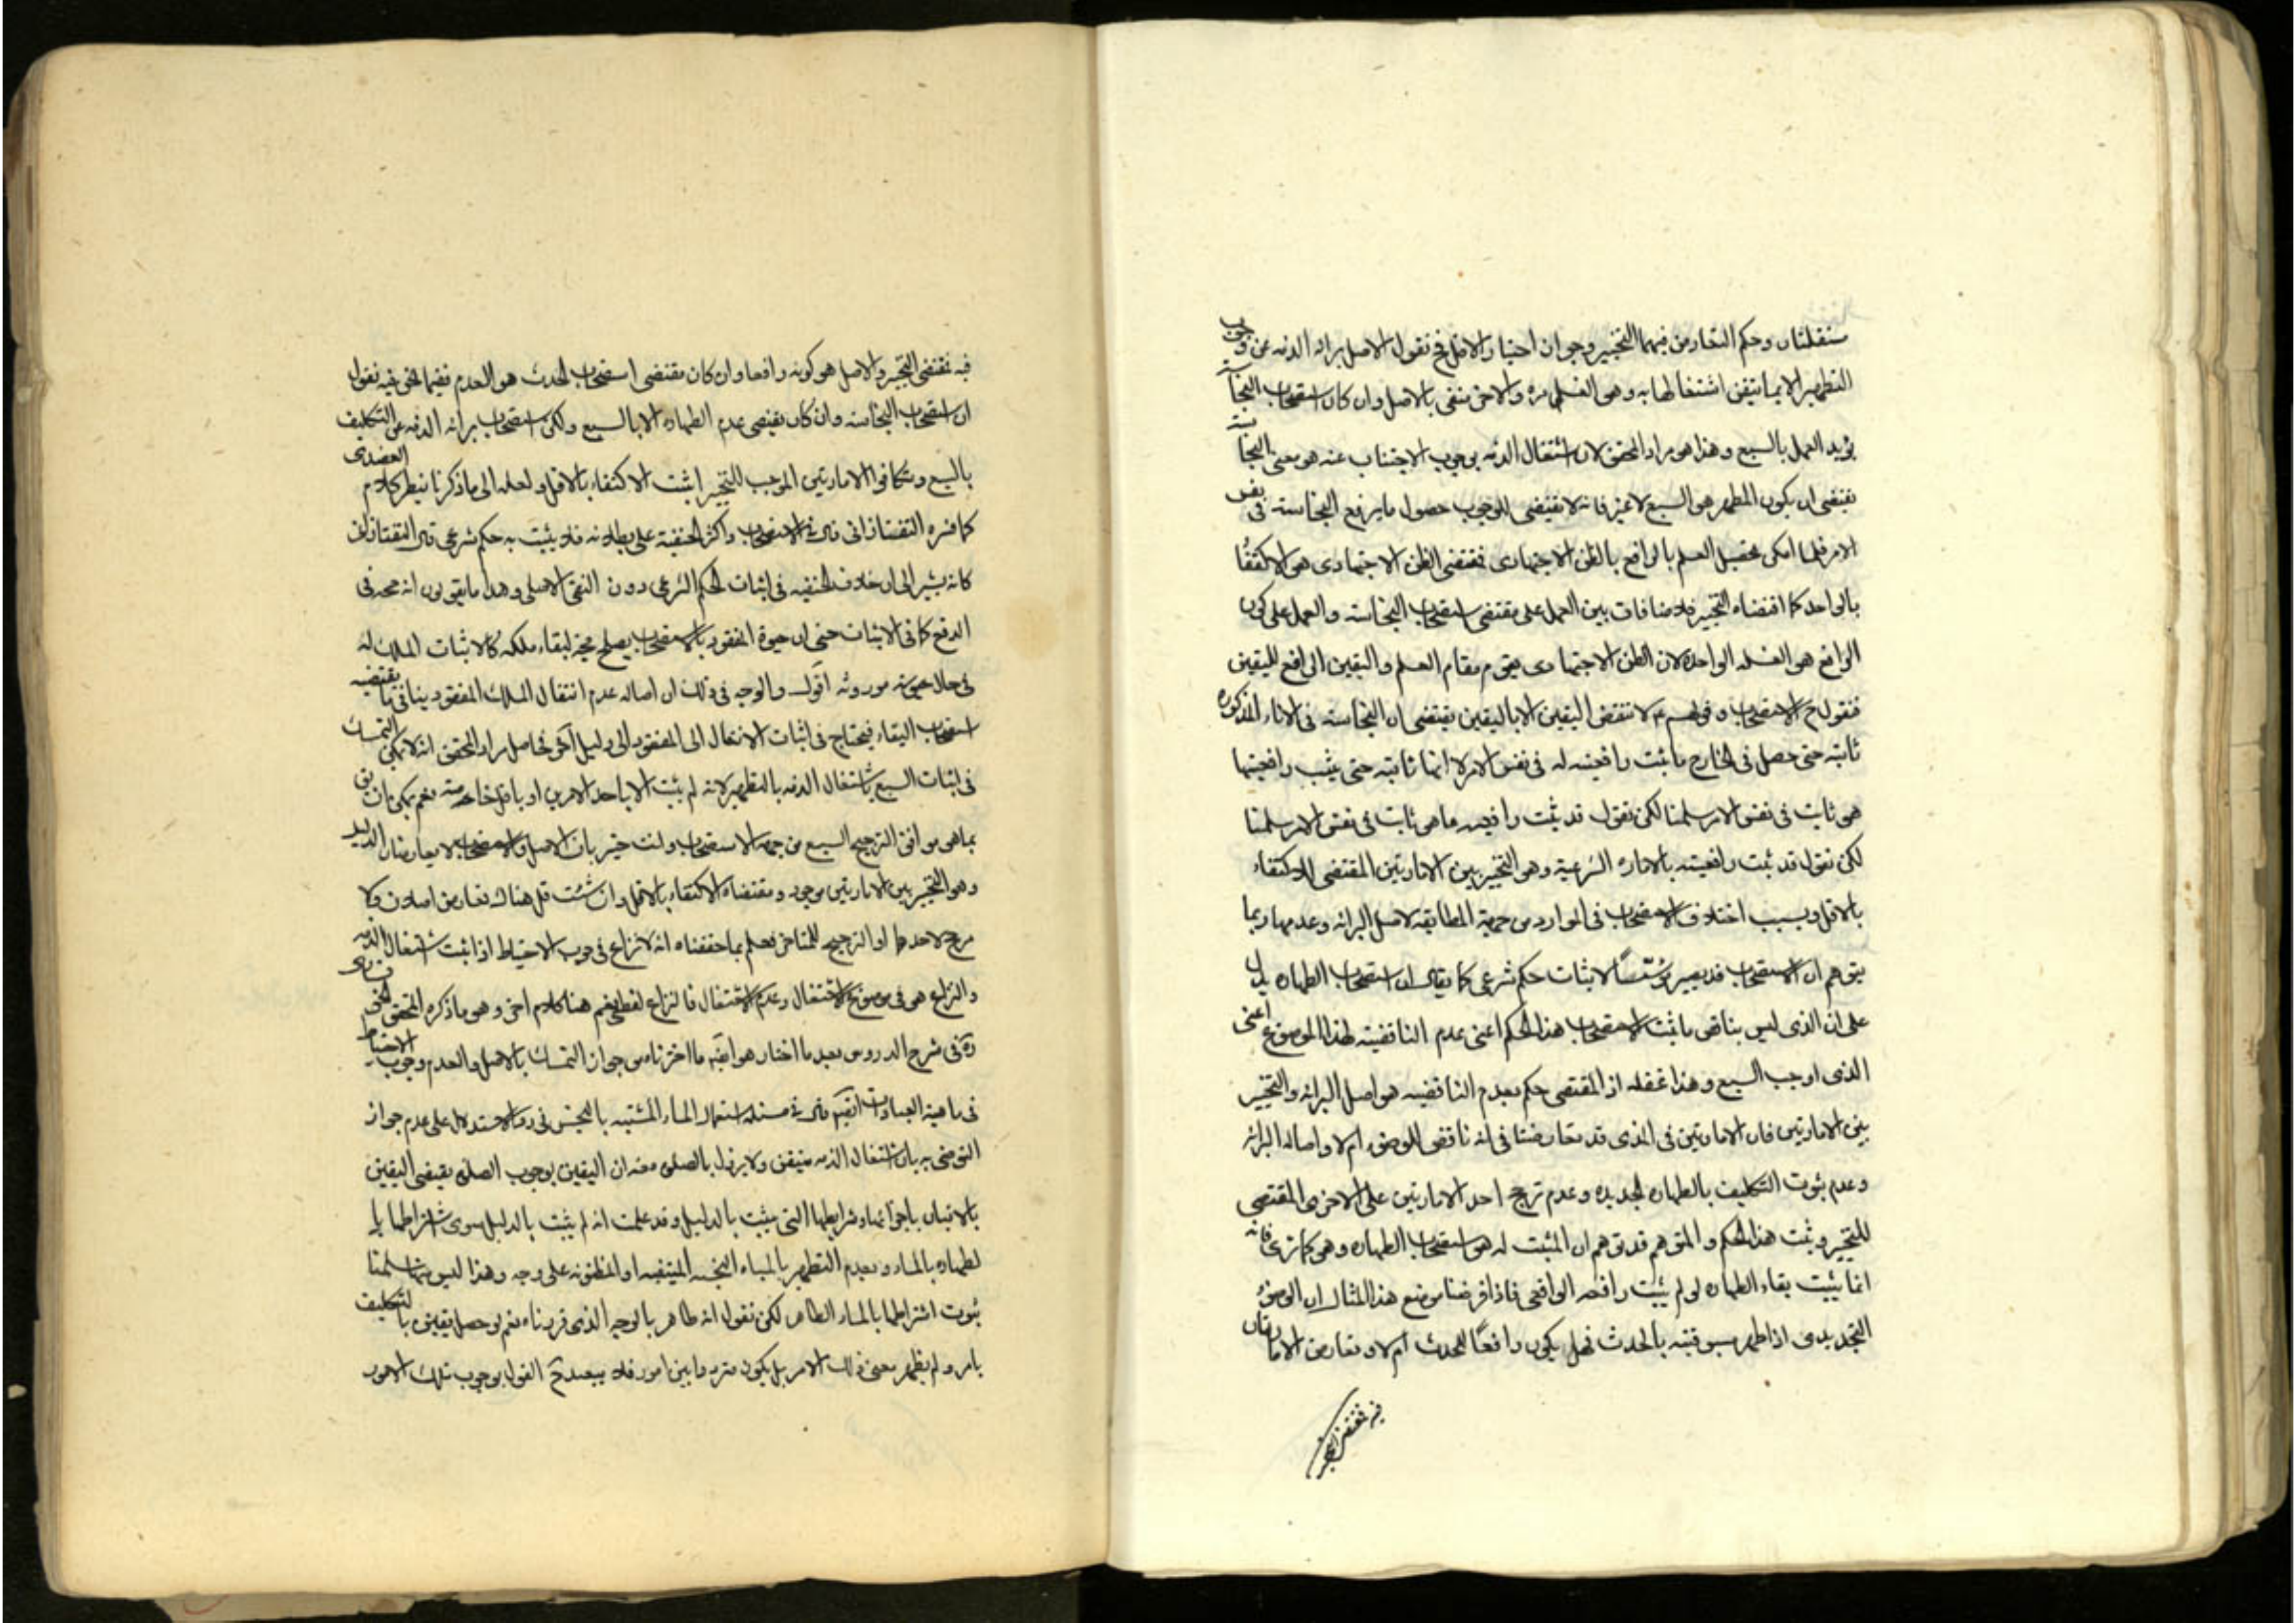 مستقلتان وحكم التعارض فيهما التخيير وجواز اختيار الاقل فح نقول الاصل برائه الذمه عن وجوب
التطهير الا بما نتيقن اشتغالها به وهى الغسل مره والاخر منفى بالاصل وان كان استصحاب النجاسة
يؤيد العمل بالسبع وهذا هو مراد المحقق لان اشتغال الذمه بوجوب الاجتناب عنه هو معنى النجاسة
يقتضى ان يكون المطهر هو السبع لا غير فانه لا يقتضى الوجوب حصول ما يرفع النجاسته فى نفس
الامر فلما امكن تحصيل العلم بالرافع بالظن الاجتهادى فمقتضى الظن الاجتهادى هو الاكتفاء
بالواحد كما اقتضاه التخيير فلا منافات بين العمل على مقتضى استصحاب النجاسته والعمل على كون
الرافع هو الغسله الواحدة لان الظن الاجتهادى يقوم مقام العلم واليقين الرافع لليقين
فنقول ح الاستصحاب وقولهم ع لا تنقض اليقين الا باليقين يقتضى ان النجاسته فى الاناء المذكوره
ثابته حتى حصل فى الخارج ما ثبت رافعيته له فى نفس الامر لا انها ثابته حتى يثبت رافعيتها
هو ثابت فى نفس الامر سلمنا لكن نقول قد ثبت رافعيه ما هو ثابت فى نفس الامر سلمنا
لكن نقول قد ثبت رافعيته بالاماره الشرعية وهو التخيير بين الامارتين المقتضى للاكتفاء
بالاقل وبسبب اختلاف الاستصحاب فى الموارد من جهة المطابقه لاصل البرائه وعدمها ربما
يتوهم ان الاستصحاب قد يصير مؤسّسًا لاثبات حكم شرعى كما يقال ان استصحاب الطهاره يدل
على ان المذى ليس بناقض ما ثبت الاستصحاب هذا الحكم اعنى عدم الناقضيته لهذا الموضوع اعنى
المذى اوجب السبع وهذا غفله اذ المقتضى حكم بعدم الناقضيه هو اصل البرائه والتخيير
بين الامارتين فان الامارتين فى المذى قد تعارضتا فى انه ناقض للوضوء ام لا واصاله البرائه
وعدم ثبوت التكليف بالطهاره الجديده وعدم ترجح احد الامارتين على الاخرى المقتضى
للتخيير وثبت هذا الحكم والمتوهم قد توهم ان المثبت له هو استصحاب الطهاره وهو كما ترى فانه
انما يثبت بقاء الطهاره لو لم يثبت رافعه الواقعى فاذا فرضنا موضع هذا المثال ان الوضوء
التجديدى اذا ظهر مسبوقيته بالحدث فهل يكون رافعًا للحدث ام لا وتعارض الامارتان
فيه فمقتضى التخيير
فيه فمقتضى التخيير والاصل هو كونه رافعا وان كان مقتضى استصحاب الحدث هو العدم ففيما نحن فيه نقول
ان استصحاب النجاسته وان كان يقتضى عدم الطهاره الا بالسبع ولكن استصحاب برائه الذمه عن التكليف
بالسبع وتكافوا الامارتين الموجب للتخيير اثبت الاكتفاء بالاقل ولعله الى ما ذكرنا ينظر كلام العضدى
كما فسره التفتازانى قال فى الاستصحاب واكثر الحنفية على بطلانه فلا يثبت به حكم شرعى قال التفتازانى
كانه يشير الى ان خلاف الحنفيه فى اثبات الحكم الشرعى دون النفى الاصلى وهذا ما يقولون انه حجه فى
الدفع كافى الاثبات حتى ان حيوة المفقود بالاستصحاب يصلح حجة لبقاء ملكه لا لاثبات الملك له
فى حال حيوته موروثه اقول والوجه فى ذلك ان اصاله عدم انتقال الملك المفقود ينافى ما يقتضيه
استصحاب البقاء فيحتاج فى اثبات الانتقال الى المفقود الى دليل آخر فحاصل مراد المحقق انه لا يمكن التمسك
فى اثبات السبع باشتغال الذمه بالتطهير لانه لم يثبت الا باحد الامرين او باقل خاصته نعم يمكن ان يق
بما هو موافق الترجيح السبع من جهه الاستصحاب وانت خبير بان الاصل والاستصحاب لا يعارضان الدليل
وهو التخيير بين الامارتين موجود ومقتضاه الاكتفاء بالاقل وان شئت قل هناك تعارض اصلان فلا
مرجح لاحدهما او الترجيح للمتاخر فعلم بما حققناه انه لا نزاع فى وجوب الاحتياط اذا ثبت اشتغال الذمه
والنزاع هو فى موضوع الاشتغال وعدم الاشتغال فالنزاع لفظى نعم هنا كلام اخر وهو ما ذكره المحقق الخونسارى
ره فى شرح الدروس بعد ما اختار هو ايضه ما اخترناه من جواز التمسك بالاصل والعدم وجوب الاحتياط
فى ماهية العبادات ايضه قال فى مسئله استعمال الماء المشتبه بالنجس فى رد الاستدلال على عدم جواز
التوضى به بان اشتغال الذمه متيقن ولا يزول بالصلوه معه ان اليقين بوجوب الصلوه يقتضى اليقين
بالاتيان باجزائها وشرايطها التى يثبت بالدليل وقد علمت انه لم يثبت بالدليل سوى اشتراطها با
لطهاره بالماء وبعدم التطهر بالمياه النجسه المتيقنه او المظنونه على وجه وهذا ليس منها سلمنا
ثبوت اشتراطها بالماء الطاهر لكن نقول انه طاهر بالوجه الذى قررناه نعم لو حصل يقين بالتكليف
بامر ولم يظهر معنى ذلك الامر بل يكون مترددا بين امور فلا يبعد ح القول بوجوب تلك الامور